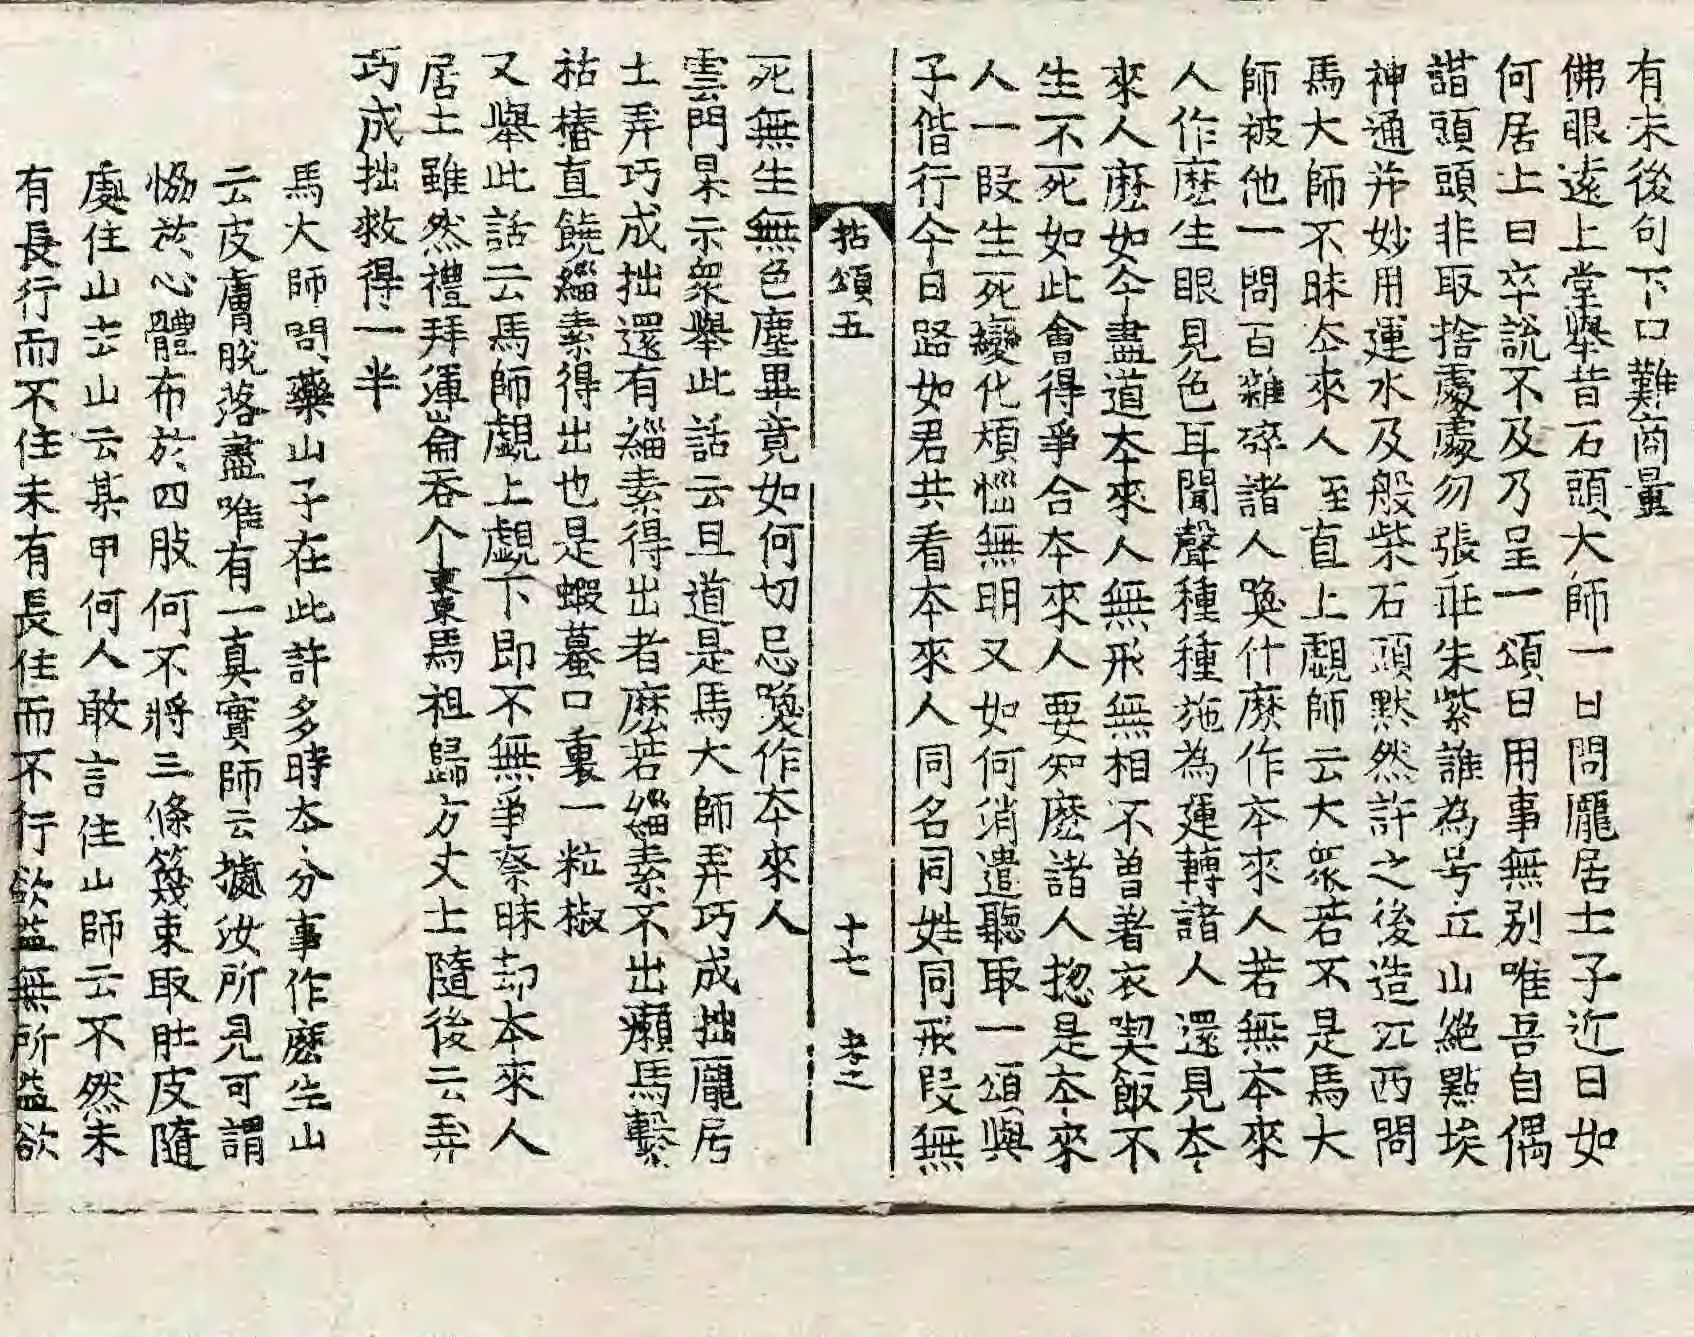 有末後句下口難啇量
佛眼遠上堂舉昔石頭大師一日問龐居士子近日如
何居士曰卒說不及乃呈一頌曰日用事無別唯吾自偶
諧頭頭非取捨處處勿張乖朱紫誰為号丘山絶點埃
神通并妙用運水及般柴石頭默然許之後造江西問
馬大師不昧夲來人至直上覷師云大衆若不是馬大
師被他一問百雜碎諸人喚什麽作夲來人若無夲來
人作麽生眼見色耳聞聲種種施為運轉諸人還見夲
來人麽如今盡道夲來人無形無相不曽著衣喫飯不
生不死如此會得爭合夲來人要知麽諸人揔是夲來
人一段生死變化煩惱無明又如何消遣聽取一頌與
子偕行今日路如君共看夲來人同名同姓同形段無
拈頌五 十七 孝之
死無生無色塵畢竟如何切忌喚作夲來人
雲門杲示衆舉此話云且道是馬大師弄巧成拙龐居
士弄巧成拙還有緇素得出者麽若緇素不出癩馬繫
枯樁直饒緇素得出也是蝦蟇口裏一粒椒
又舉此話云馬師覷上覷下即不無爭柰昧却夲來人
居士雖然禮拜渾崙吞个棗馬祖歸方丈士隨後云弄
巧成拙救得一半
馬大師問藥山子在此許多時夲分事作麽生山
云皮膚脫落盡唯有一真實師云據汝所見可謂
恊於心體布於四肢何不將三條篾束取肚皮隨
處住山去山云某甲何人敢言住山師云不然未
有長行而不住未有長住而不行欲益無所益欲